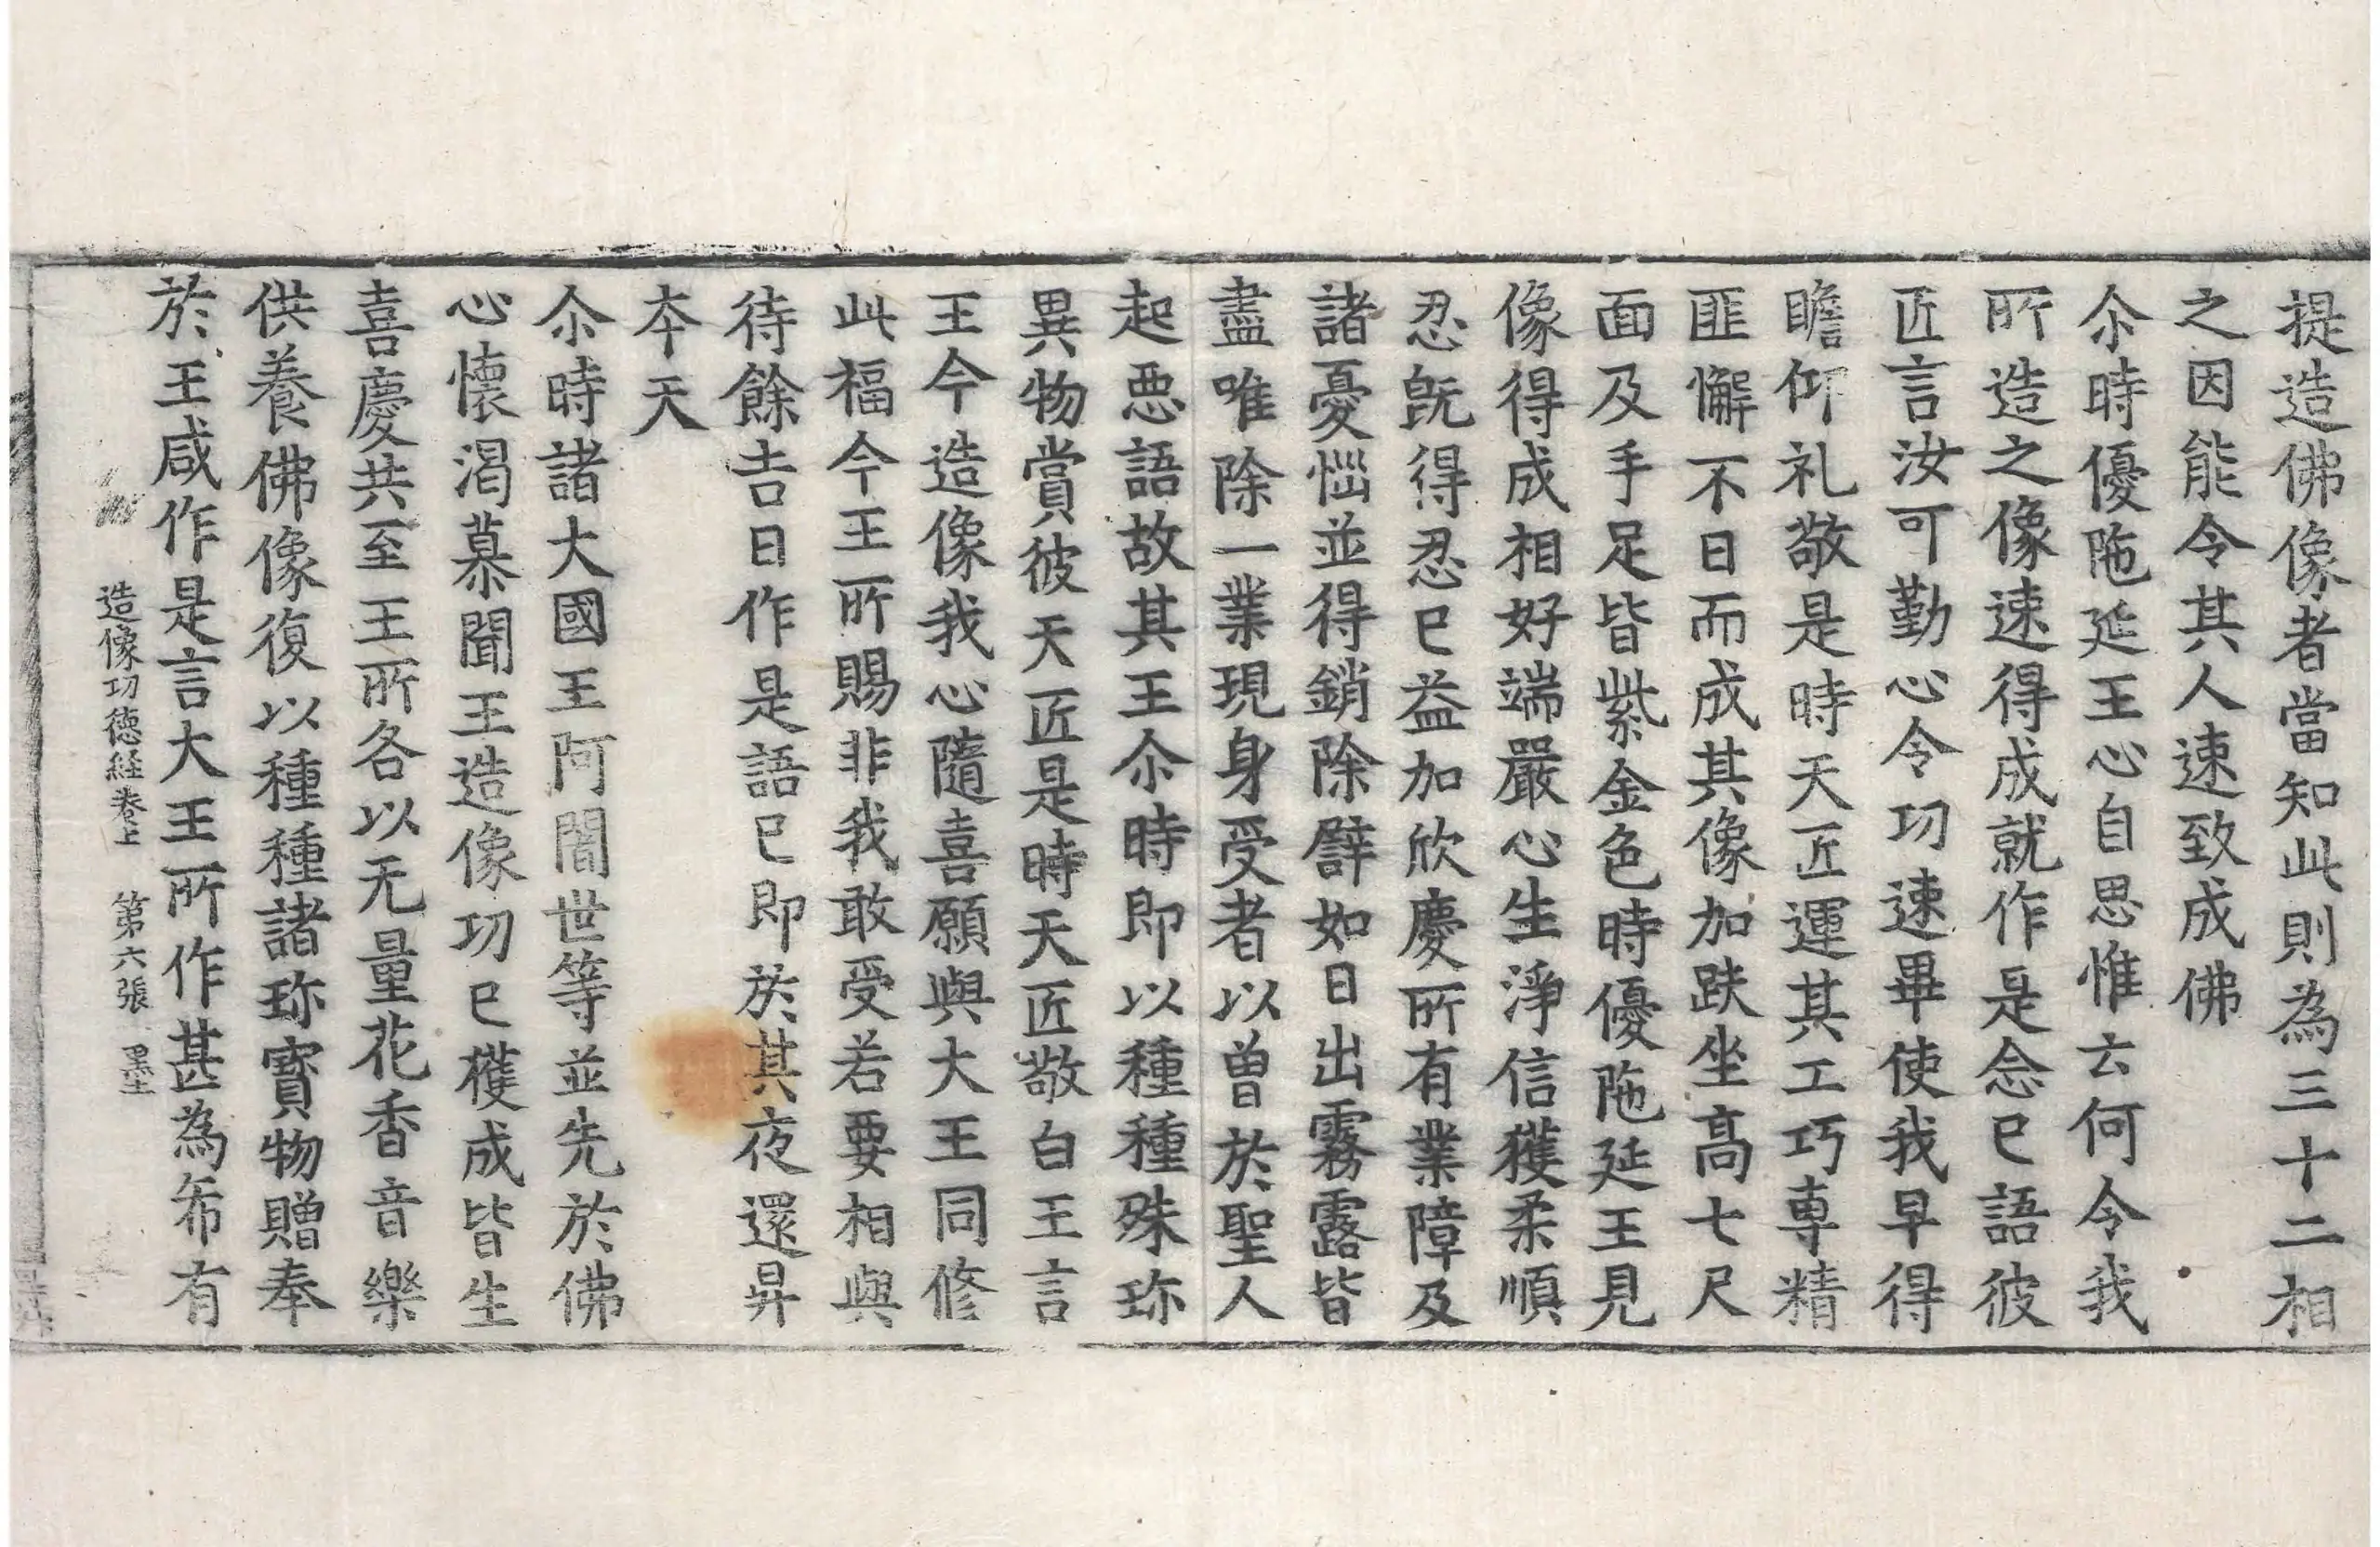 提造佛像者當知此則為三十二相
之因能令其人速致成佛
尒時優陁延王心自思惟云何令我
所造之像速得成就作是念已語彼
匠言汝可勤心令功速畢使我早得
瞻仰礼敬是時天匠運其工巧專精
匪懈不日而成其像加趺坐高七尺
面及手足皆紫金色時優陁延王見
像得成相好端嚴心生淨信獲柔順
忍旣得忍已益加欣慶所有業障及
諸憂惱並得銷除譬如日出霧露皆
盡唯除一業現身受者以曾於聖人
起惡語故其王尒時即以種種殊珎
異物賞彼天匠是時天匠敬白王言
王今造像我心隨喜願與大王同修
此福今王所賜非我敢受若要相與
待餘吉日作是語已即於其夜還昇
夲天
尒時諸大國王阿闍世等並先於佛
心懷渴慕聞王造像功已獲成皆生
喜慶共至王所各以无量花香音樂
供養佛像復以種種諸珎寶物贈奉
於王咸作是言大王所作甚為希有
造像功德経卷上 第六張 墨